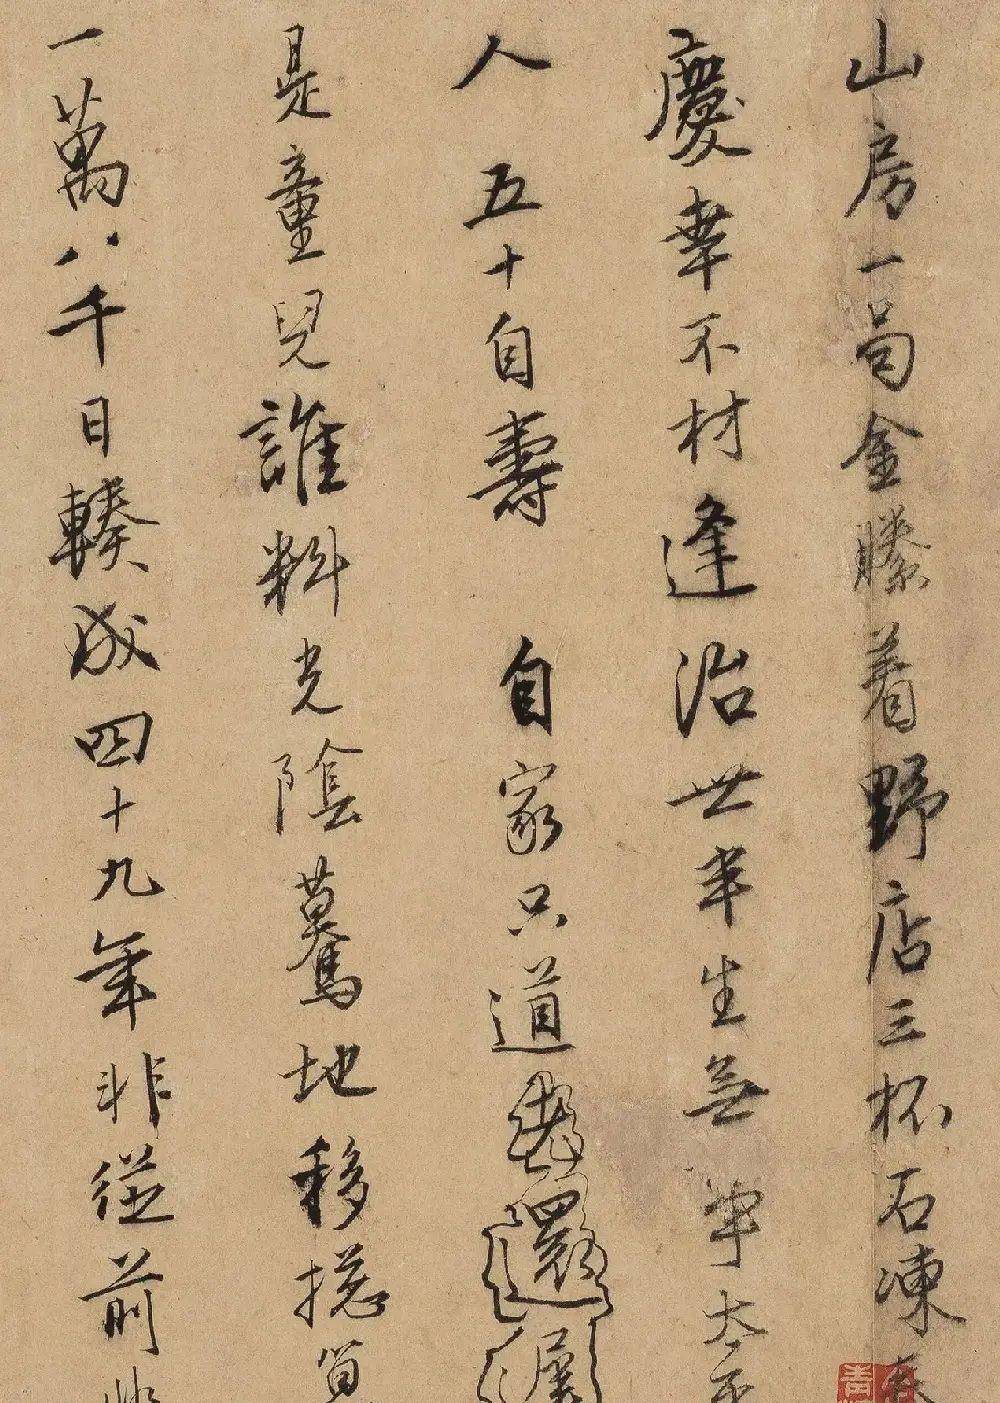 山房一局金縢着野店三杯石凍春
慶幸不材逢治世半生無事太平
人 五十自壽 自家只道還
是童兒誰料光陰驀地移揔算
一萬八千日輳成四十九年非從前